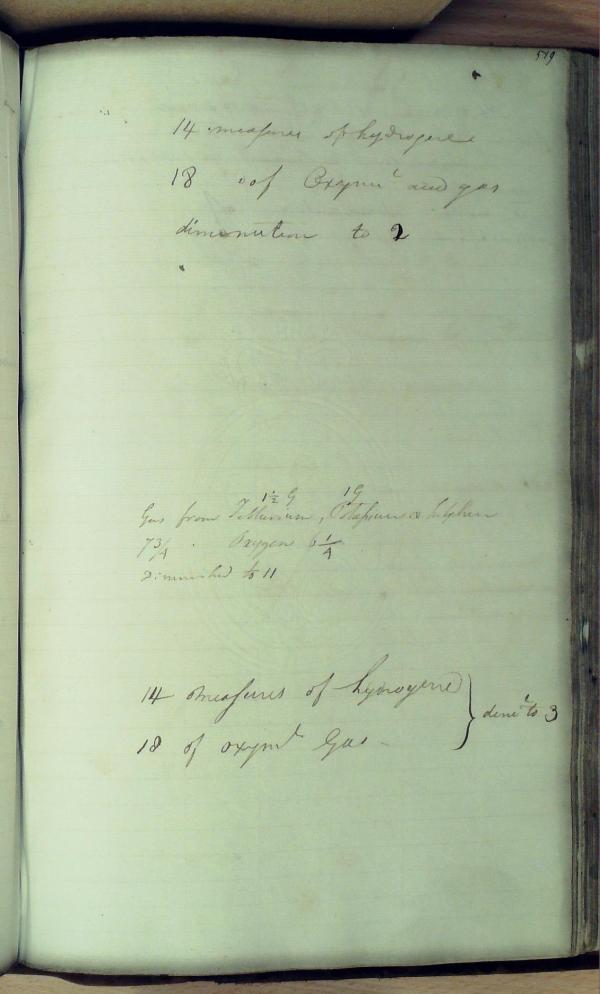 519
14 measures of hydrogene
18 of Oxymc and gas
diminution to 2
1½ G 1G
Gas from Tellurium, Potassium & Sulphur
7¾ Oxygen 6¼
Diminished to 11
14 measures of hydrogene
18 of oxymc Gas -
dimd to 3